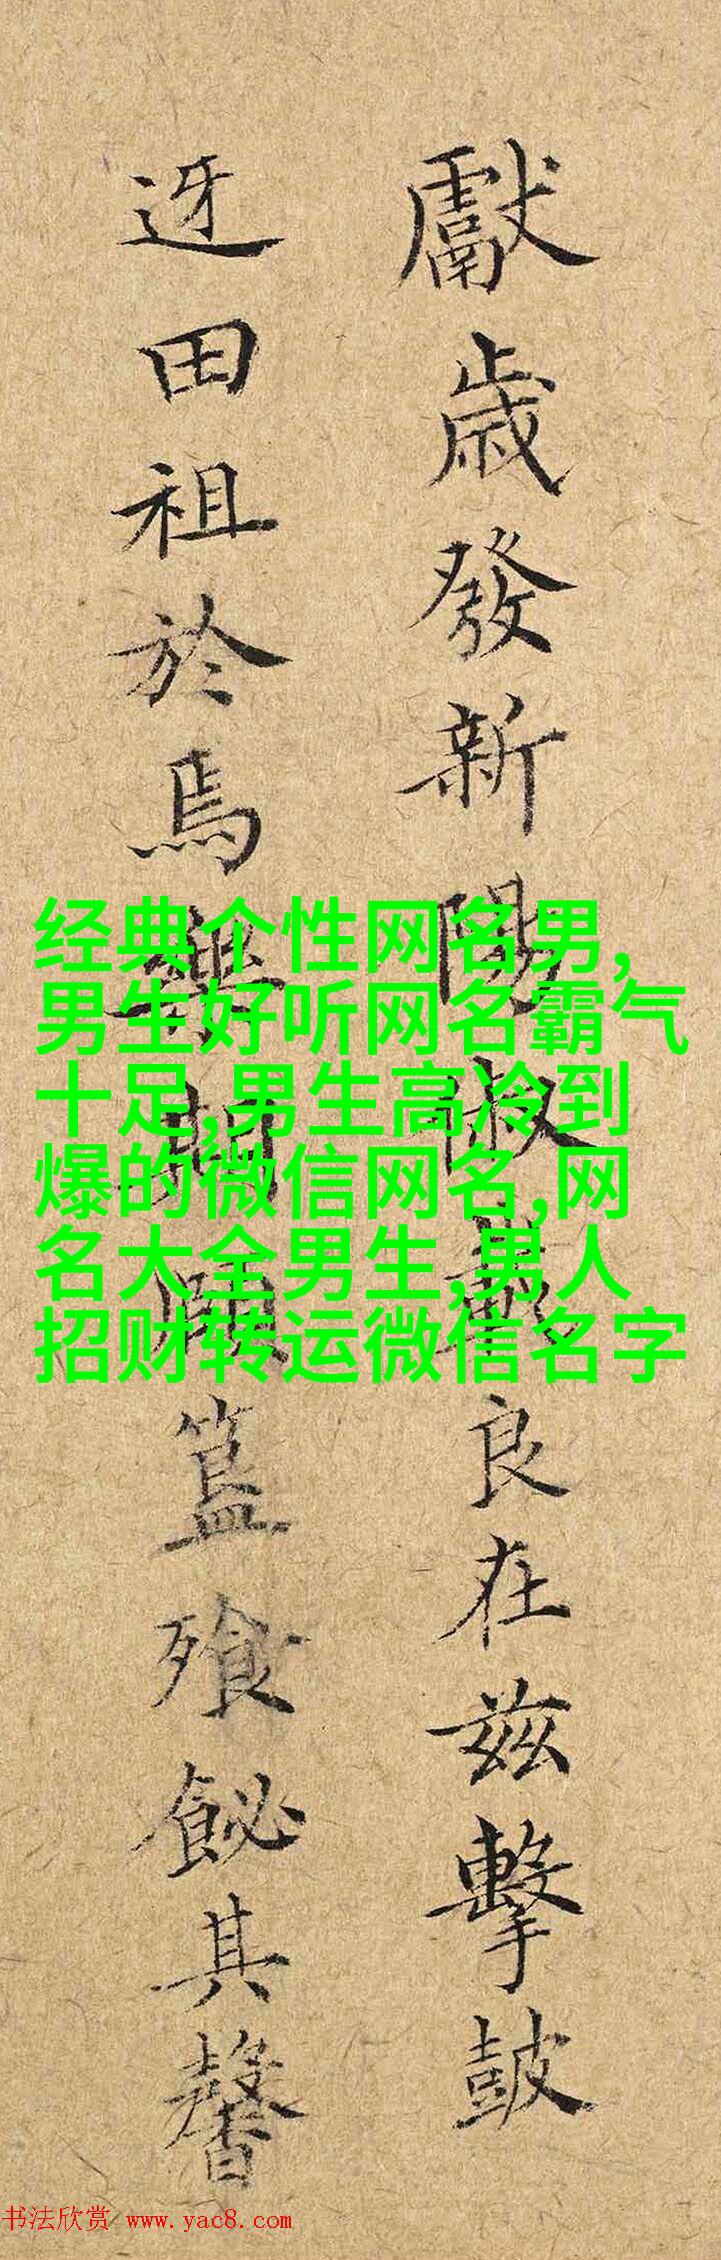 獻歲發新陽良在茲擊皷
迓田祖於焉簋飱飶其馨
经典个性网名男,
男生好听网名霸气
十足,男生高冷到
爆的微信网名,网
名大全男生,男人
招财转运微信名字
书法欣赏 www.yac8.com